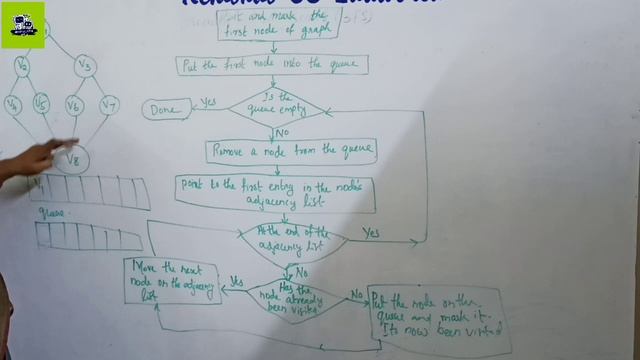 Visit and mark the
first node of graph
Put the first node into the queue
Is the
queue empty
Yes
Done
No
Remove a node from the queue
point to the first entry in the node's
adjacency list
At the end of the
adjacency list
Yes
No
Has the
node already
been visited
Yes
No
Move the next
node on the adjacency
list
Put the node on the
queue and mark it.
Its now been visited
V2
V3
V4
V5
V6
V7
V8
V1
queue